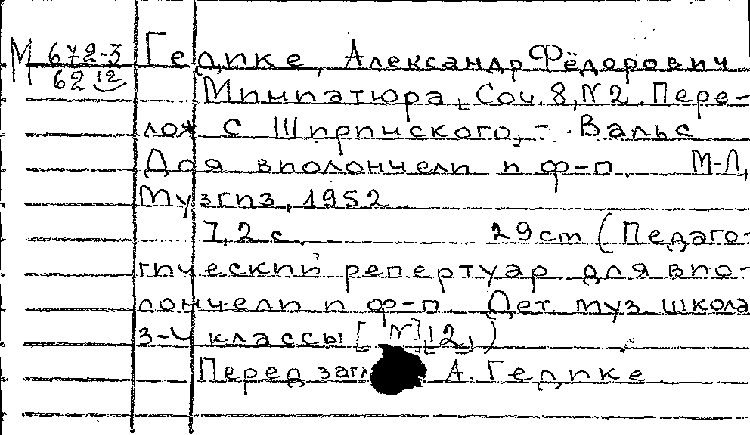 М 672-3
62 12
Гедике, Александр Фёдорович
Миниатюра, Соч. 8, N 2. Пере-
лож С Ширинского, - Вальс
Для виолончели и ф-п М-Л,
Музгиз, 1952
7, 2 с. 29 cm (Педаго-
гический репертуар для вио-
лончели и ф-п Дет муз школа
3-4 классы [N] 12,)
Перед загл А. Гедике